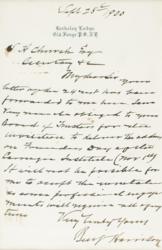 Sept 25th 1900
Berkeley Lodge
Old Forge P.O. N.Y.
S H Church Esq
Secretary &c
My dear Sir
Your
letter of the 21st inst has been
forwarded to me here. I am
very much obliged to your
Board of Trustees for the
invitation to deliver the address
on Founders Day of the
Carnegie Institute (Nov 1st)
It will not be possible for
me to accept the invitation
as some professional engage-
ments will require all my
time
Very truly yours
Benj Harrison